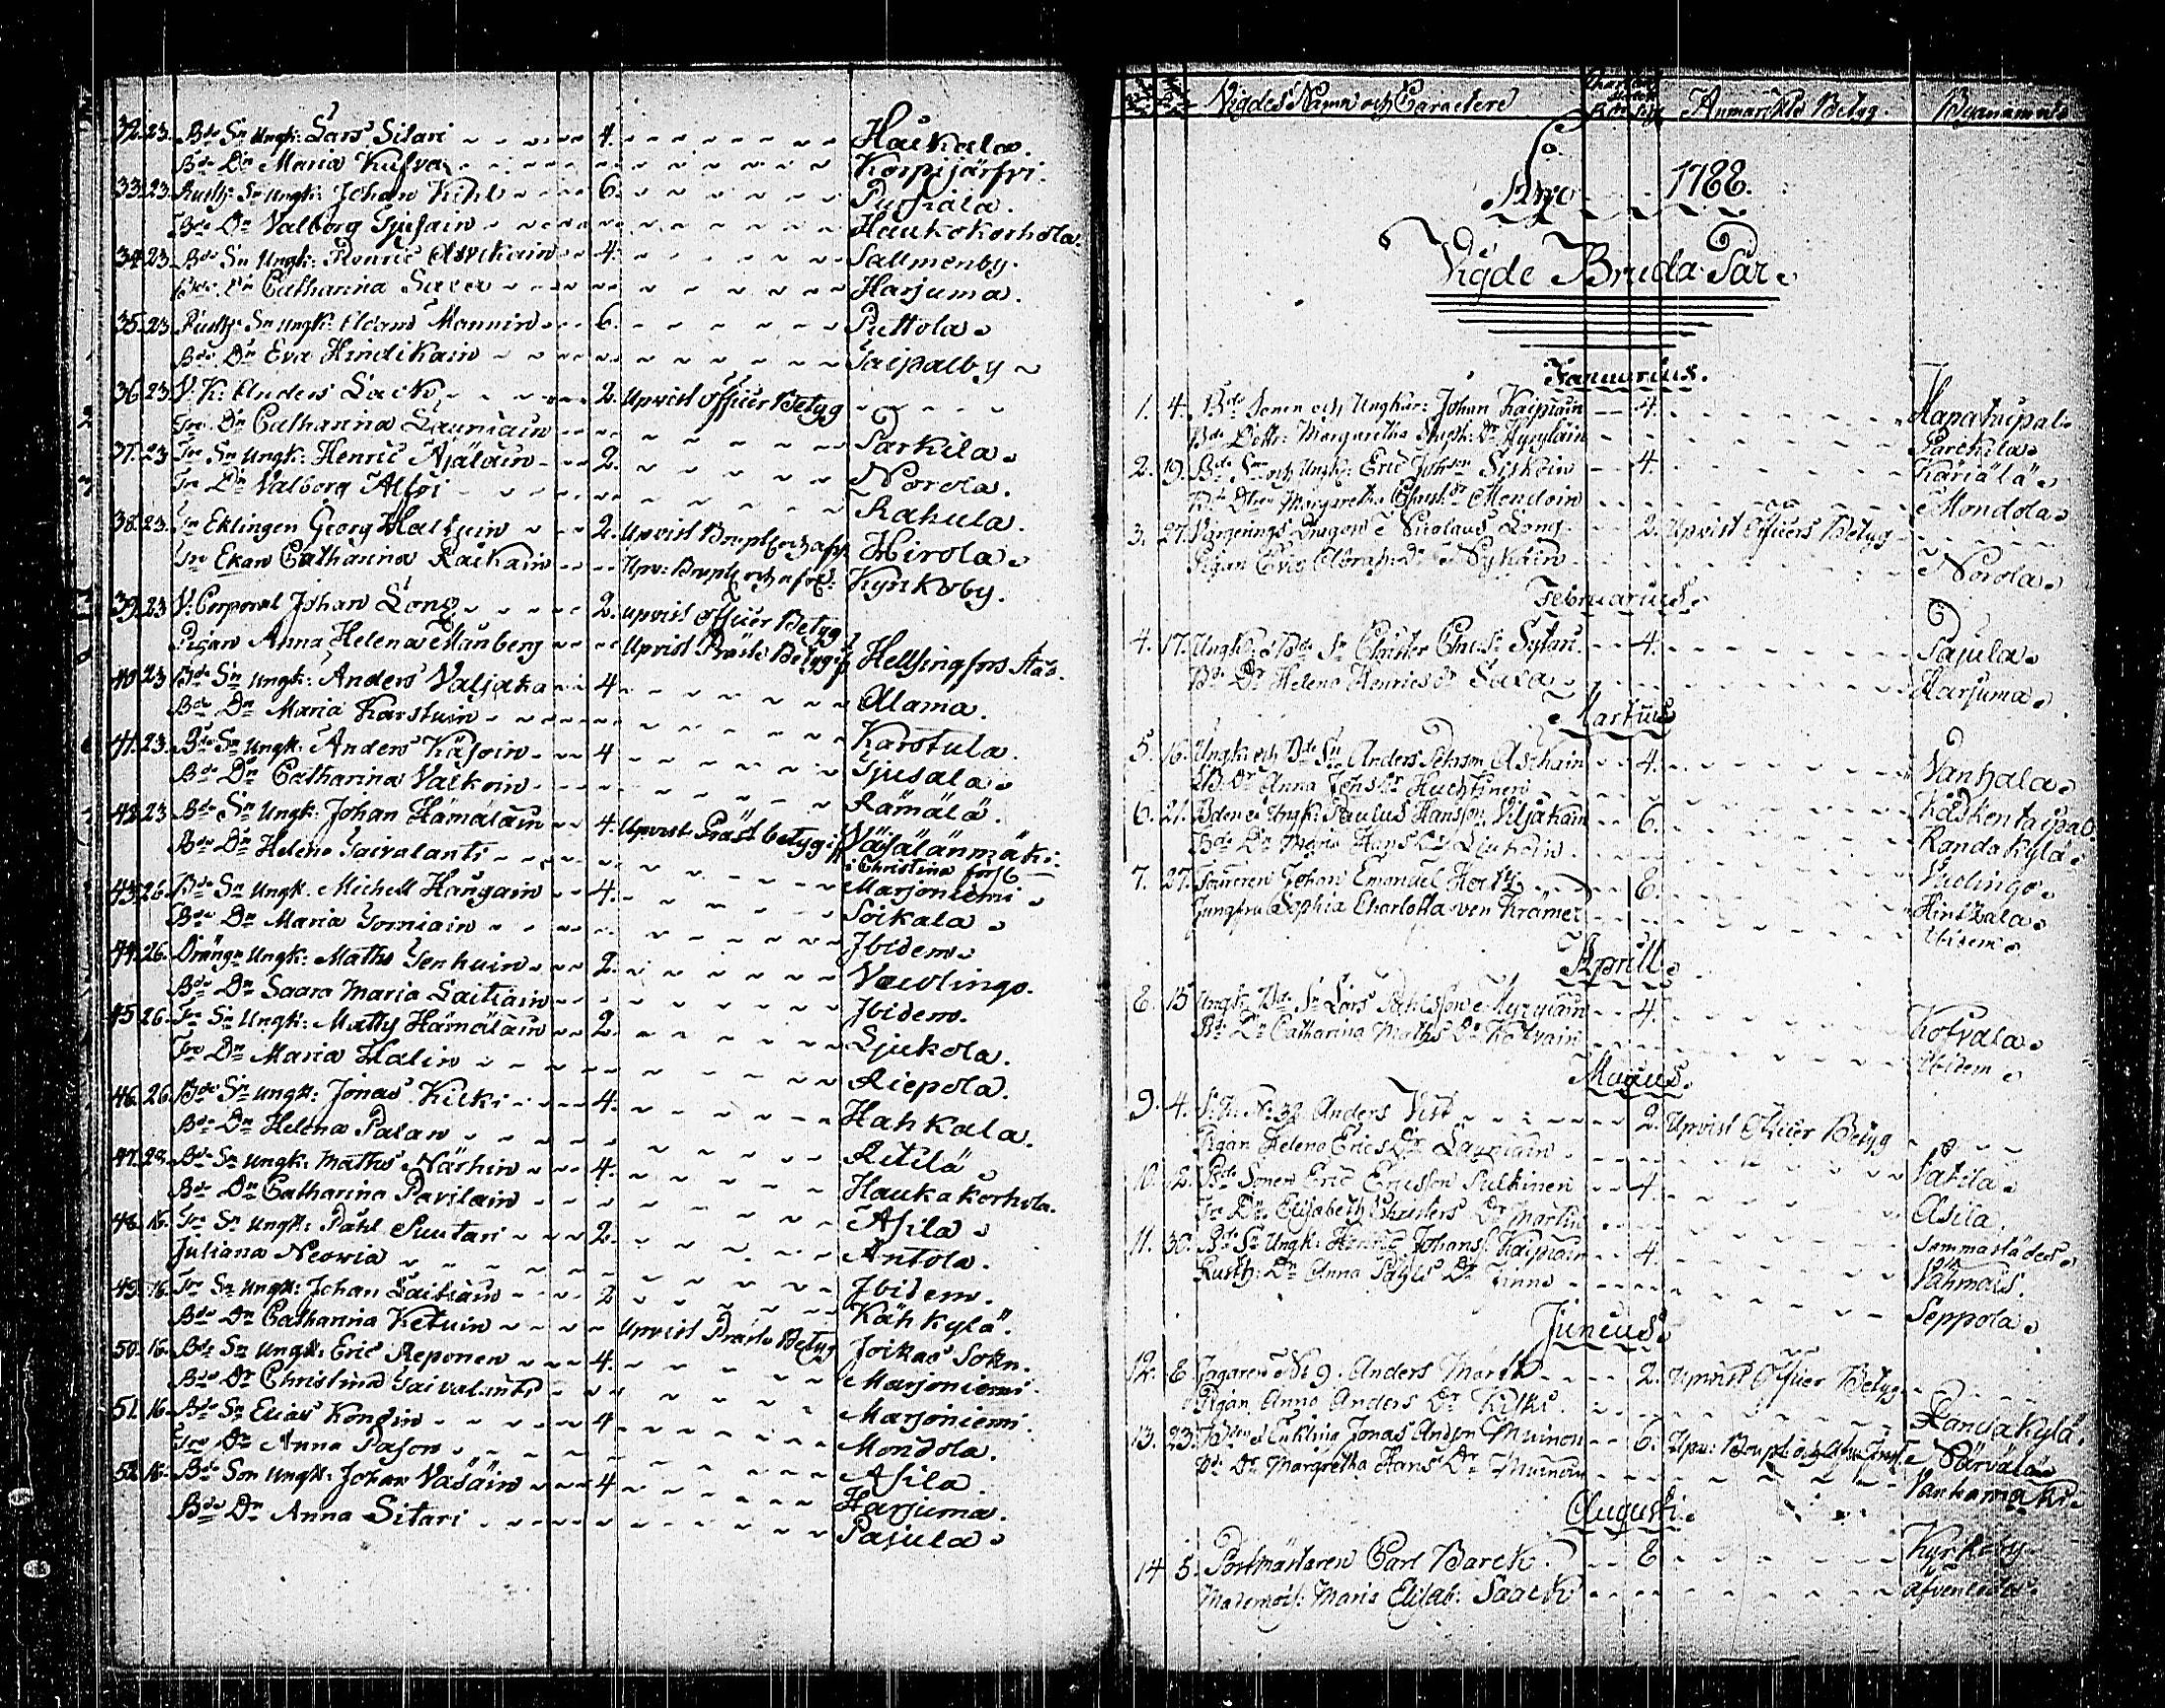 32. 23. Bde Sn Ungk: Lars Sitari 4. Haukala.
Bde Dn Maria Kufva Korpijärfvi.
33. 23. Rusth: Sn Ungk: Johan Kihl 6. Pursiala.
Bde Dn Valborg Tjusain Haukokorhola.
34. 23. Bde Sn Ungk: Henric Asikain 4. Sallmenby.
Bde Dn Catharina Saxa Harjuma.
35. 23. Rusth: Sn Ungk: Adam Mannin 6. Puttola.
Bde Dn Eva Hindikain Taipalby
36. 23. V. K: Anders Lack 2. Upvist Officer Betyg
Tro Dn Catharina Launiain Parkila.
37. 23 Tro Sn Ungk: Henric Ajälain 2. Norola.
Tro Dn Valborg Alfvi Rahula.
38. 23. Enklingen Georg Hattuin 2. Upvist Hirola.
Enkan Catharina Raikain Upv: Kyrkoby.
39. 23 V: Corporal Johan Long 2. Upvist Officer Betyg
Pigan Anna Helena Manberg Upvist Präste Betyg Hellsingfors Stad.
40. 23 Bde Sn Ungk: Anders Valjaka 4. Alama.
Bde Dn Maria Karstuin Karstula.
41. 23. Bde Sn Ungk: Anders Käsoin 4 Tjusala.
Bde Dn Catharina Valkoin Rämälä.
42. 23 Bde Sn Ungk: Johan Hämäläin 4. Upvist Präst betyg Väsälänmäki
Bde Dn Helena Taivalanti i Christina förs:
43. 26. Bde Sn Ungk: Michell Haugain 4. Marjoniemi
Bde Dn Maria Torniain Soikala
44. 26. Drängn Ungk: Maths Tenhuin 2. Ibidem
Bde Dn Saara Maria Laitiain Vawlingo.
45 26. Tro Sn Ungk: Matts Hämäläin 2. Ibidem.
Tro Dn Maria Halin Ljukola.
46. 26. Bde Sn Ungk: Jonas Kilki 4. Riepola.
Bde Dn Helena Palan Hahkala.
47. 28. Bde Sn Ungk: Maths Närhin 4. Ritilä
Bde Dn Catharina Pavilain Haukakorhola.
48. 16. Tro Sn Ungk: Påhl Suutari 2. Asila
Juliana Neowia Antola.
49. 16. Tro Sn Ungk: Johan Laitiain 2 Ibidem.
Bde Dn Catharina Ketuin Upvist Präste Betyg Kähkylä.
50. 16. Bde Sn Ungk: Eric Reponen 4. Joikas Sokn.
Bde Dn Christina Taivalanti Marjoniemi.
51. 16. Bde Sn Elias Kondin 4 Marjoniemi.
Tro Dn Anna Pason Mondola.
52. 16. Bde Son Ungk: Johan Väsäin 4 Asila.
Bde Dn Anna Sitari Harjuma.
Pajula.
Vigdes Namn och Caractere Anmärkte Betyg. Byanamnen
Anno 1788.
Vigde Bruda Par.
Januarius.
1. 4. Bde Sonen och Ungkar: Johan Kaipiain 4. Hapataipal.
Bde Dottr: Margaretha Staph: Dr Hyrylain Parckila.
2. 19. Bde Sn och Ungk: Eric Johson Siskoin 4. Käriälä.
Margaretha Mondoin Mondola.
3. 27. Vargerings Dragon Nicolaus Long 2. Upvist Officers Betyg
Pigan Eva Abrah: Dr Nykain Norola.
Februarius.
4. 17. Ungk: Bde Sn Christer Sytari 4. Pajula.
Bde Dr Helena Henrics Dr Saxa Harjuma.
Martius
5. 16. Ungk: och Bde Sn Anders Petrson Asikain 4. Vanhala.
Bde Dr Anna Johs Dr Huchtinen Koskentaipal.
6. 21. Ungk: Paulus Hansson Viljakain 6. Randakylä.
Bde Dr Maria Hans Dr Liukoin Vuolingo.
7. 27. Johan Emanuel 8. Hintzala.
Jungfru Sophia Charlotta von Krämer Ibidem.
Aprill.
8. 13 Ungk: Bde Sn Lars Påhlsson Myryläin 4. Kotvala.
Bde Dr Catharina Maths Dr Kotvain Ibidem.
Maijus.
9. 4. No 32 Anders Vist 2. Upvist Officer Betyg
Pigan Helena Erics Dr Launiain Vatila.
10. 12. Bde Sonen Eric Ericsson Pulkinen 4. Asila.
Tro Dr Elisabeth Christers Dr Martin Sommarsäden.
11. 30. Bde Sn Ungk: Henric Johans: Kaipiain 4. Vahmais.
Rusth: Dr Anna Påhls Dr Tinno Seppola.
Junius.
12. 8 Jagaren No 9. Anders Marck 2. Upvist Officer Betyg
Pigan Anna Anders Dr Kilki. Randakylä.
13. 23. Enkling Jonas Andsn Muinon 6. Upv: Pärvälä
Bde Dr Margretha Hans Dr Muinoin Vanhamäki.
Augusti.
14 5. Postmästaren Carl Barck. 8. Kyrkoby.
Mademois: Maria Elisab: Saack äfvenledes.